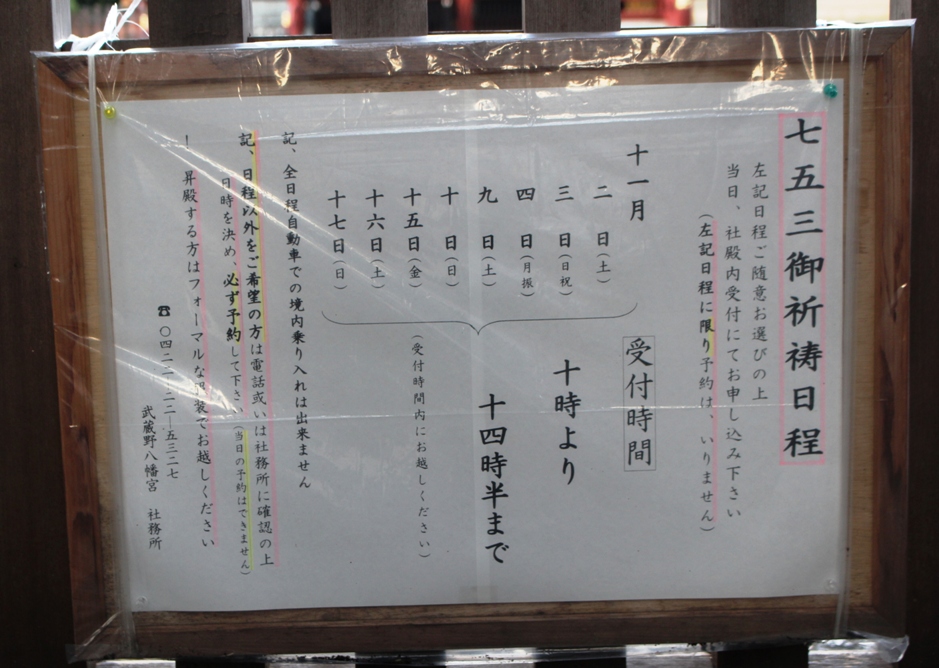 七五三御祈祷日程
左記日程ご随意お選びの上
当日、社殿内受付にてお申し込み下さい
（左記日程に限り予約は、いりません）
十一月
二日（土）
三日（日祝）
四日（月振）
九日（土）
十日（日）
十五日（金）
十六日（土）
十七日（日）
受付時間
十時より
十四時半まで
（受付時間内にお越しください）
記、全日程自動車での境内乗り入れは出来ません
記、日程以外をご希望の方は電話或いは社務所に確認の上
日時を決め、必ず予約して下さい（当日の予約はできません）
！昇殿する方はフォーマルな服装でお越しください
☎〇四二二―二二―五三二七
武蔵野八幡宮 社務所